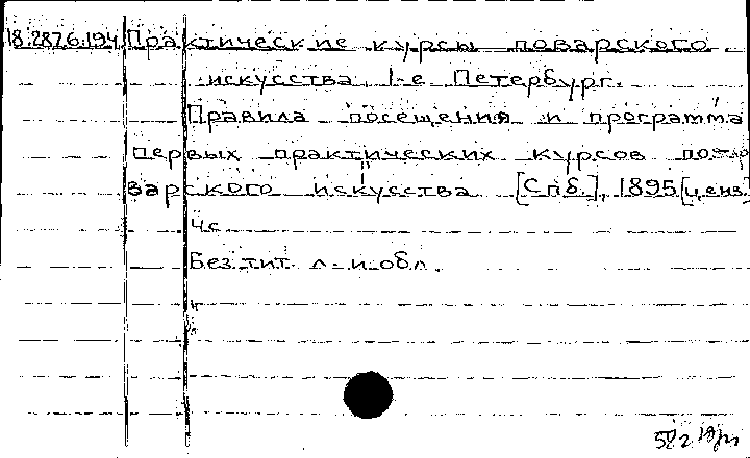 18.287.6.194 Практические курсы поварского
искусства, 1-е Петербург.
Правила посещения и программа
первых практических курсов по-
варского искусства [Спб.], 1895 [ценз.]
4 с.
Без тит. л. и обл.